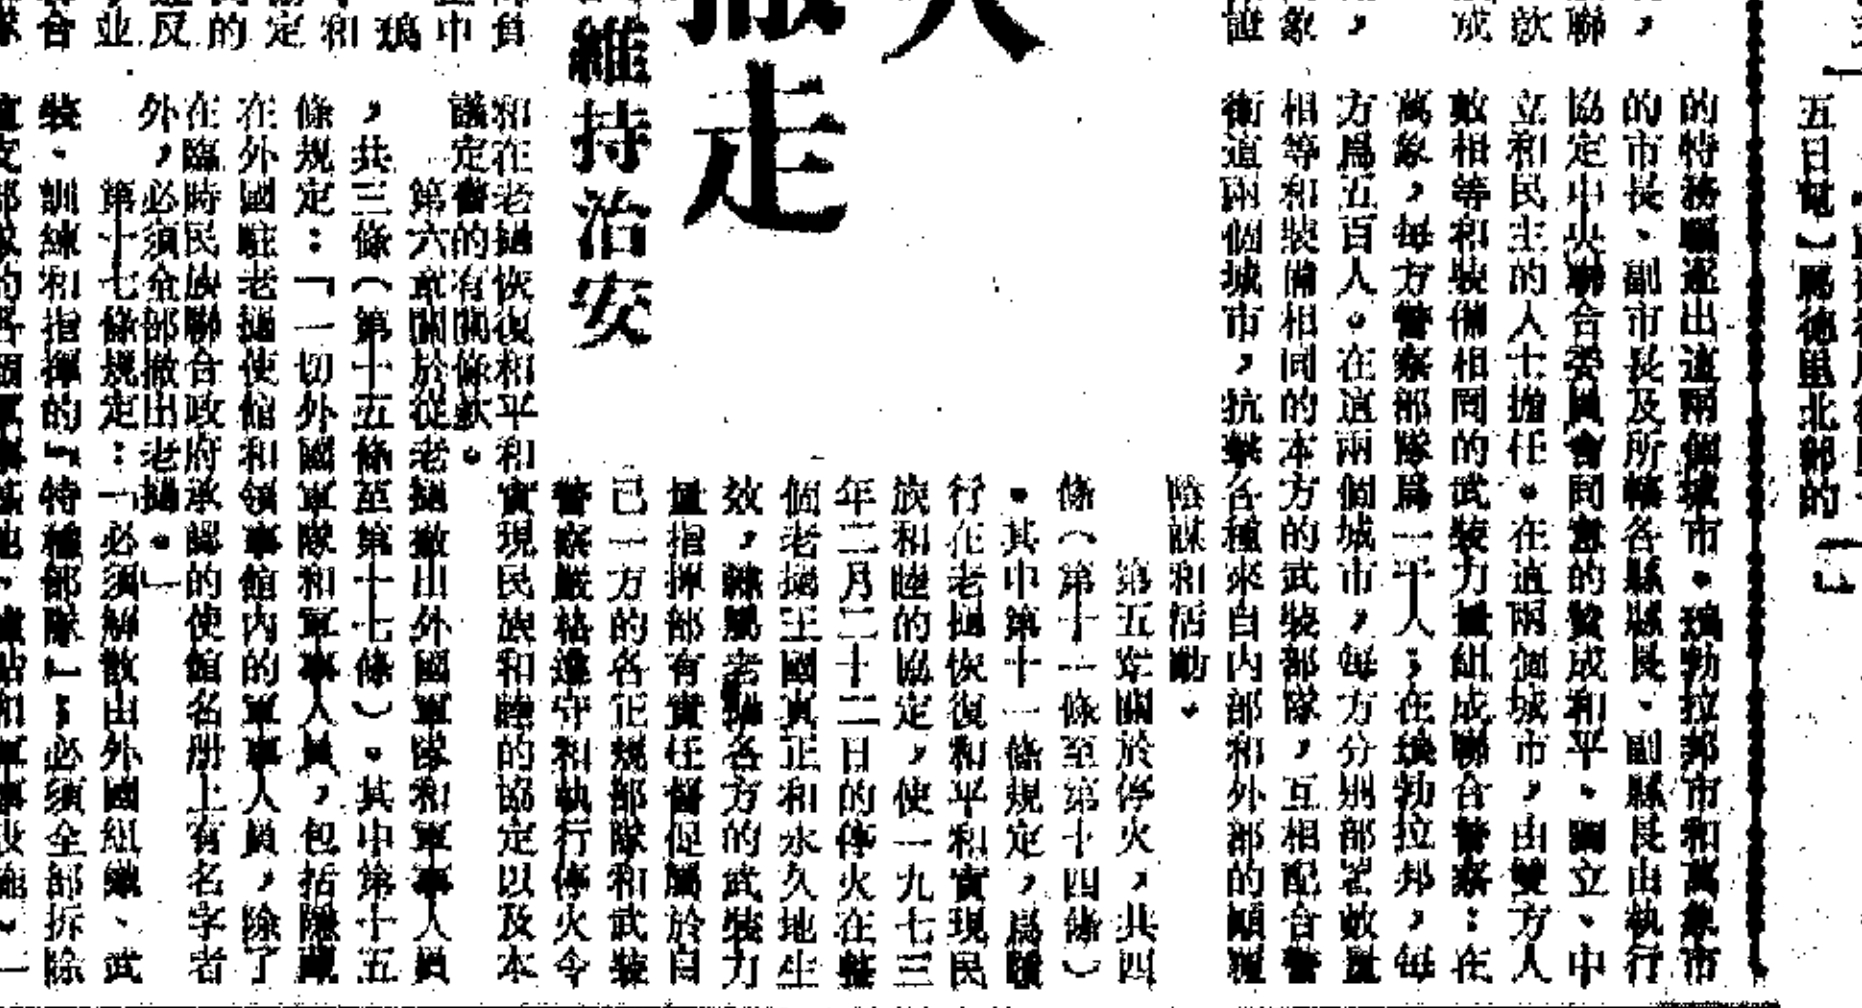 五日電】馬德里北部的
，
聯
款
成
，
象
的特務驅逐出這兩個城市。瑯勃拉邦市和萬象市
的市長、副市長及所轄各縣縣長、副縣長由執行
協定中央聯合委員會同意的贊成和平、獨立、中
立和民主的人士擔任。在這兩個城市，由雙方人
數相等和裝備相同的武裝力量組成聯合警察：在
萬象，每方警察部隊爲一千人；在瑯勃拉邦，每
方爲五百人。在這兩個城市，每方分別部署數量
相等和裝備相同的本方的武裝部隊，互相配合警
衛這兩個城市，抗擊各種來自內部和外部的顛覆
陰謀和活動。
第五章關於停火，共四
條（第十一條至第十四條）
。其中第十一條規定，爲履
行在老撾恢復和平和實現民
族和睦的協定，使一九七三
年二月二十二日的停火在整
個老撾王國真正和永久地生
效，隸屬老撾各方的武裝力
量指揮部有責任督促屬於自
已一方的各正規部隊和武裝
警察嚴格遵守和執行停火令
人
撤走
維持治安
負
中
和
定
的
反
並
合
和在老撾恢復和平和實現民族和睦的協定以及本
議定書的有關條款。
第六章關於從老撾撤出外國軍隊和軍事人員
，共三條（第十五條至第十七條）。其中第十五
條規定：「一切外國軍隊和軍事人員，包括隱蔽
在外國駐老撾使館和領事館內的軍事人員，除了
在臨時民族聯合政府承認的使館名册上有名字者
外，必須全部撤出老撾。」
第十七條規定：「必須解散由外國組織、武
裝、訓練和指揮的『特種部隊』；必須全部拆除